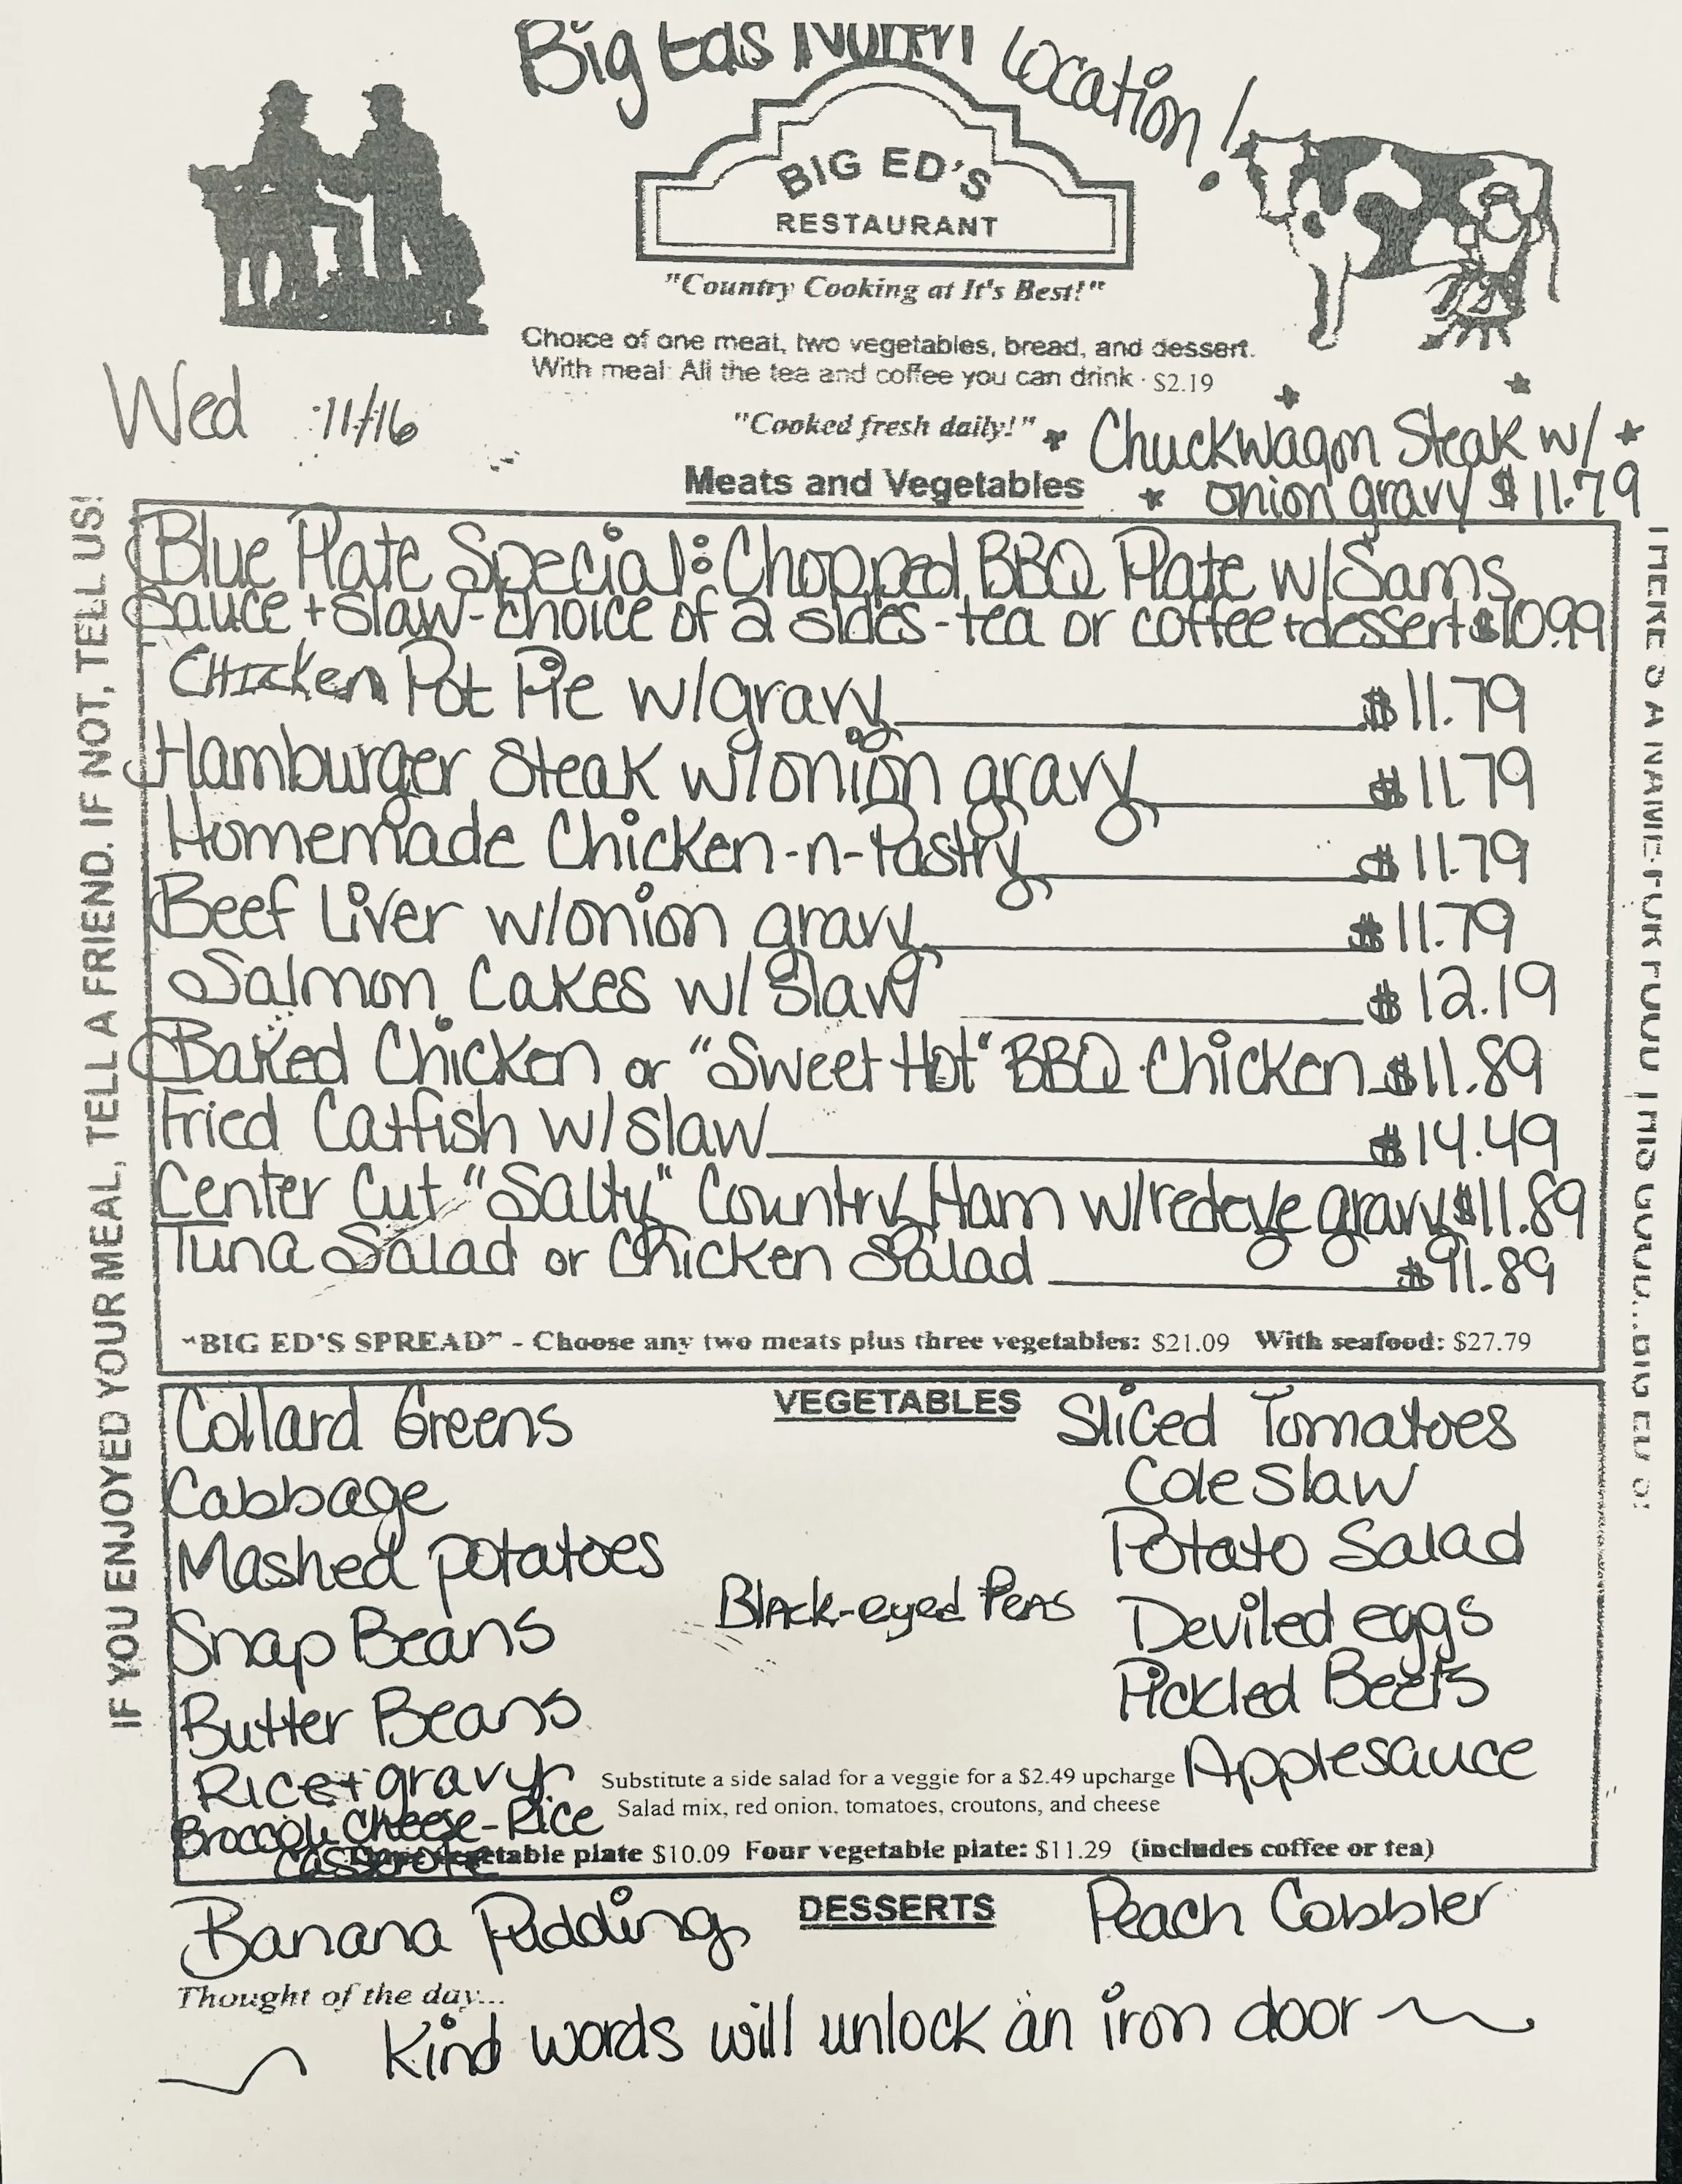 Big Eds North Location!
BIG ED'S
RESTAURANT
"Country Cooking at It's Best!"
Choice of one meat, two vegetables, bread, and dessert.
With meal: All the tea and coffee you can drink · $2.19
Wed 11/16
"Cooked fresh daily!"
Chuckwagon Steak w/
onion gravy $11.79
Meats and Vegetables
Blue Plate Special: Chopped BBQ Plate w/Sams
Sauce + slaw - choice of 2 sides - tea or coffee + dessert $10.99
Chicken Pot Pie w/gravy $11.79
Hamburger Steak w/onion gravy $11.79
Homemade Chicken-n-Pastry $11.79
Beef Liver w/onion gravy $11.79
Salmon Cakes w/ Slaw $12.19
Baked Chicken or "Sweet Hot" BBQ Chicken $11.89
Fried Catfish w/slaw $14.49
Center Cut "Salty" Country Ham w/redeye gravy $11.89
Tuna Salad or Chicken Salad $91.89
"BIG ED'S SPREAD" - Choose any two meats plus three vegetables: $21.09 With seafood: $27.79
VEGETABLES
Collard Greens
Cabbage
Mashed potatoes
Snap Beans
Butter Beans
Rice + gravy
Broccoli Cheese-Rice
Casserole
Black-eyed Peas
Sliced Tomatoes
Cole Slaw
Potato Salad
Deviled eggs
Pickled Beets
Applesauce
Substitute a side salad for a veggie for a $2.49 upcharge
Salad mix, red onion, tomatoes, croutons, and cheese
plate $10.09 Four vegetable plate: $11.29 (includes coffee or tea)
DESSERTS
Banana Pudding
Peach Cobbler
Thought of the day...
Kind words will unlock an iron door
IF YOU ENJOYED YOUR MEAL, TELL A FRIEND. IF NOT, TELL US!
THERE'S A NAME FOR FOOD THIS GOOD...BIG ED'S!